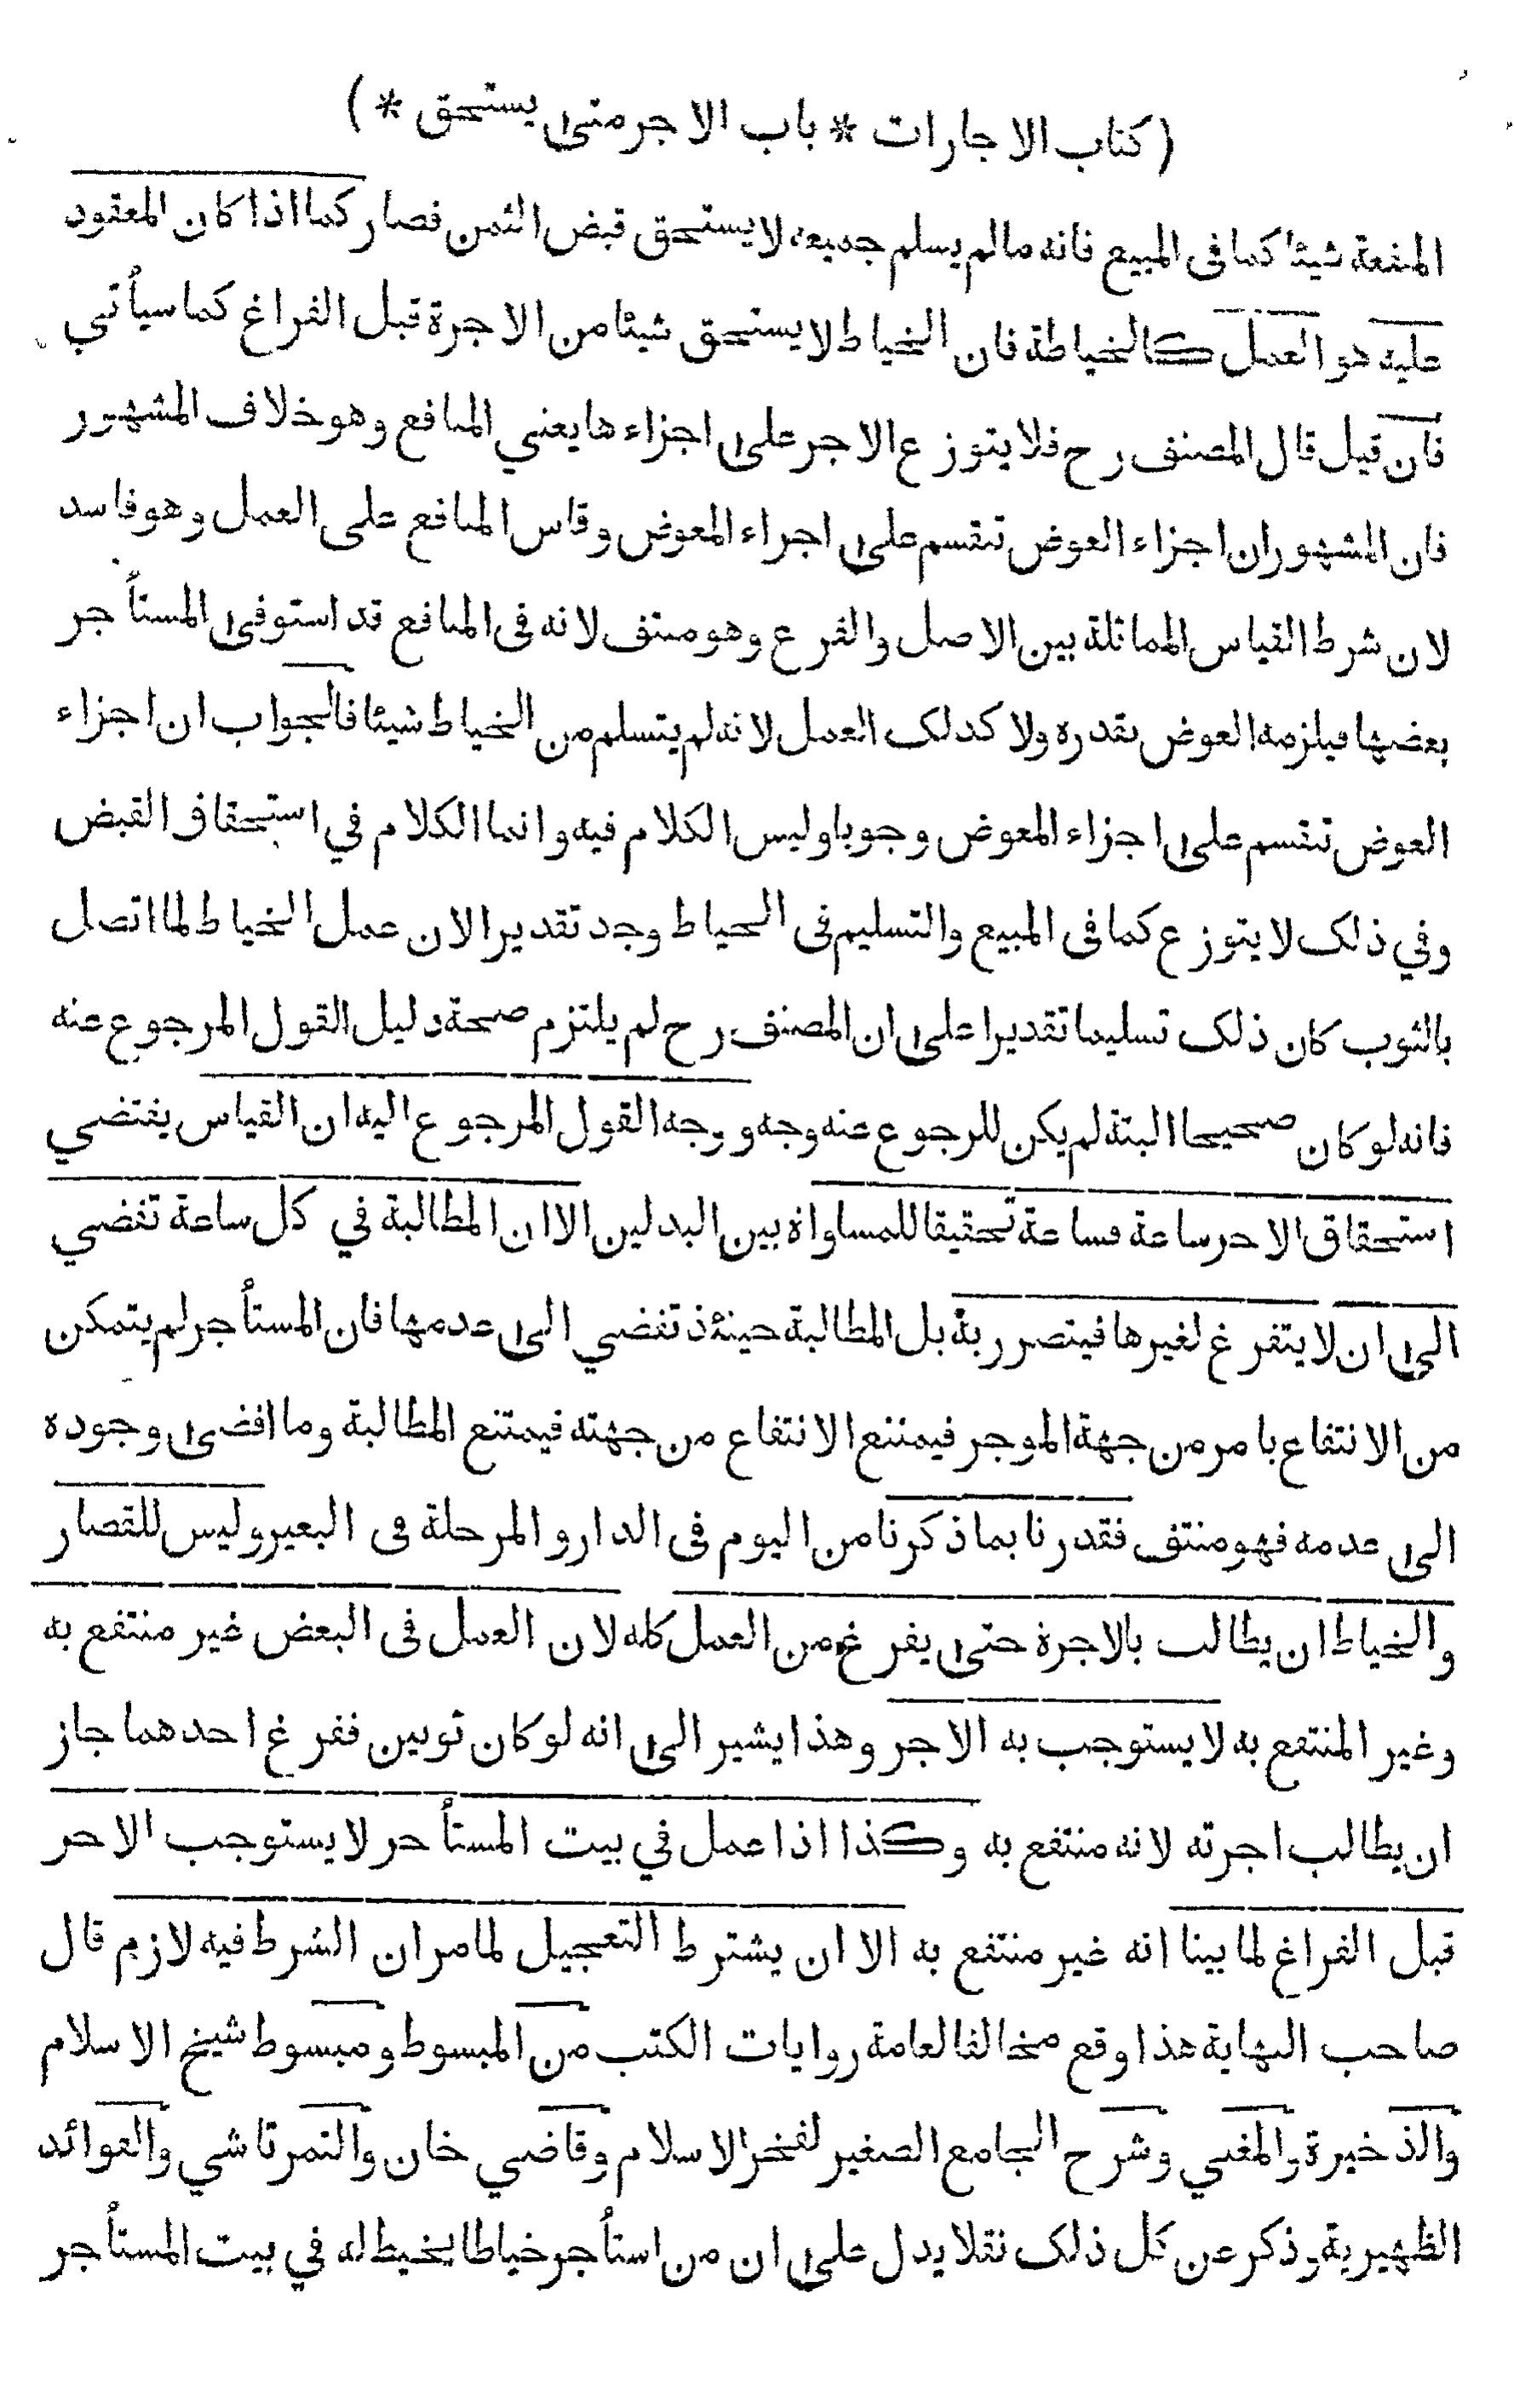 (كتاب الاجارات * باب الاجر متى يستحق *)
المنفعة شيئا كما فى المبيع فانه مالم يسلم جميعه لا يستحق قبض الثمن فصار كما اذا كان المعقود
عليه هو العمل كالخياطة فان الخياط لا يستحق شيئا من الاجرة قبل الفراغ كما سيأتي
فان قيل قال المصنف رح فلا يتوزع الاجر على اجزاءها يعني المنافع وهو خلاف المشهور
فان المشهور ان اجزاء العوض تنقسم على اجزاء المعوض وقاس المنافع على العمل وهو فاسد
لان شرط القياس المماثلة بين الاصل والفرع وهو منتف لانه فى المنافع قد استوفى المستأجر
بعضها فيلزمه العوض بقدره ولا كذلك العمل لانه لم يتسلم من الخياط شيئا فالجواب ان اجزاء
العوض تنقسم على اجزاء المعوض وجوبا وليس الكلام فيه وانما الكلام في استحقاق القبض
وفي ذلك لا يتوزع كما فى المبيع والتسليم فى الخياط وجد تقديرا لان عمل الخياط لما اتصل
بالثوب كان ذلك تسليما تقديرا على ان المصنف رح لم يلتزم صحة دليل القول المرجوع عنه
فانه لو كان صحيحا البتة لم يكن للرجوع عنه وجه ووجه القول المرجوع اليه ان القياس يقتضي
استحقاق الاجر ساعة فساعة تحقيقا للمساواة بين البدلين الا ان المطالبة في كل ساعة تفضي
الى ان لا يتفرغ لغيرها فيتضرر به بل المطالبة حينئذ تفضي الى عدمها فان المستأجر لم يتمكن
من الانتفاع بامر من جهة الموجر فيمتنع الانتفاع من جهته فيمتنع المطالبة وما افضى وجوده
الى عدمه فهو منتف فقدرنا بما ذكرنا من اليوم فى الدار والمرحلة فى البعير وليس للقصار
والخياط ان يطالب بالاجرة حتى يفرغ من العمل كله لان العمل فى البعض غير منتفع به
وغير المنتفع به لا يستوجب به الاجر وهذا يشير الى انه لو كان ثوبين ففرغ احدهما جاز
ان يطالب اجرته لانه منتفع به وكذا اذا عمل في بيت المستأجر لا يستوجب الاجر
قبل الفراغ لما بينا انه غير منتفع به الا ان يشترط التعجيل لما مر ان الشرط فيه لازم قال
صاحب النهاية هذا وقع مخالفا لعامة روايات الكتب من المبسوط ومبسوط شيخ الاسلام
والذخيرة والمغني وشرح الجامع الصغير لفخر الاسلام وقاضي خان والتمرتاشي والفوائد
الظهيرية وذكر عن كل ذلك نقلا يدل على ان من استأجر خياطا يخيط له في بيت المستأجر